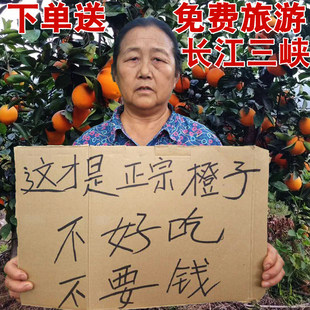 下单送 免费旅游
长江三峡
这才是正宗橙子
不好吃
不要钱